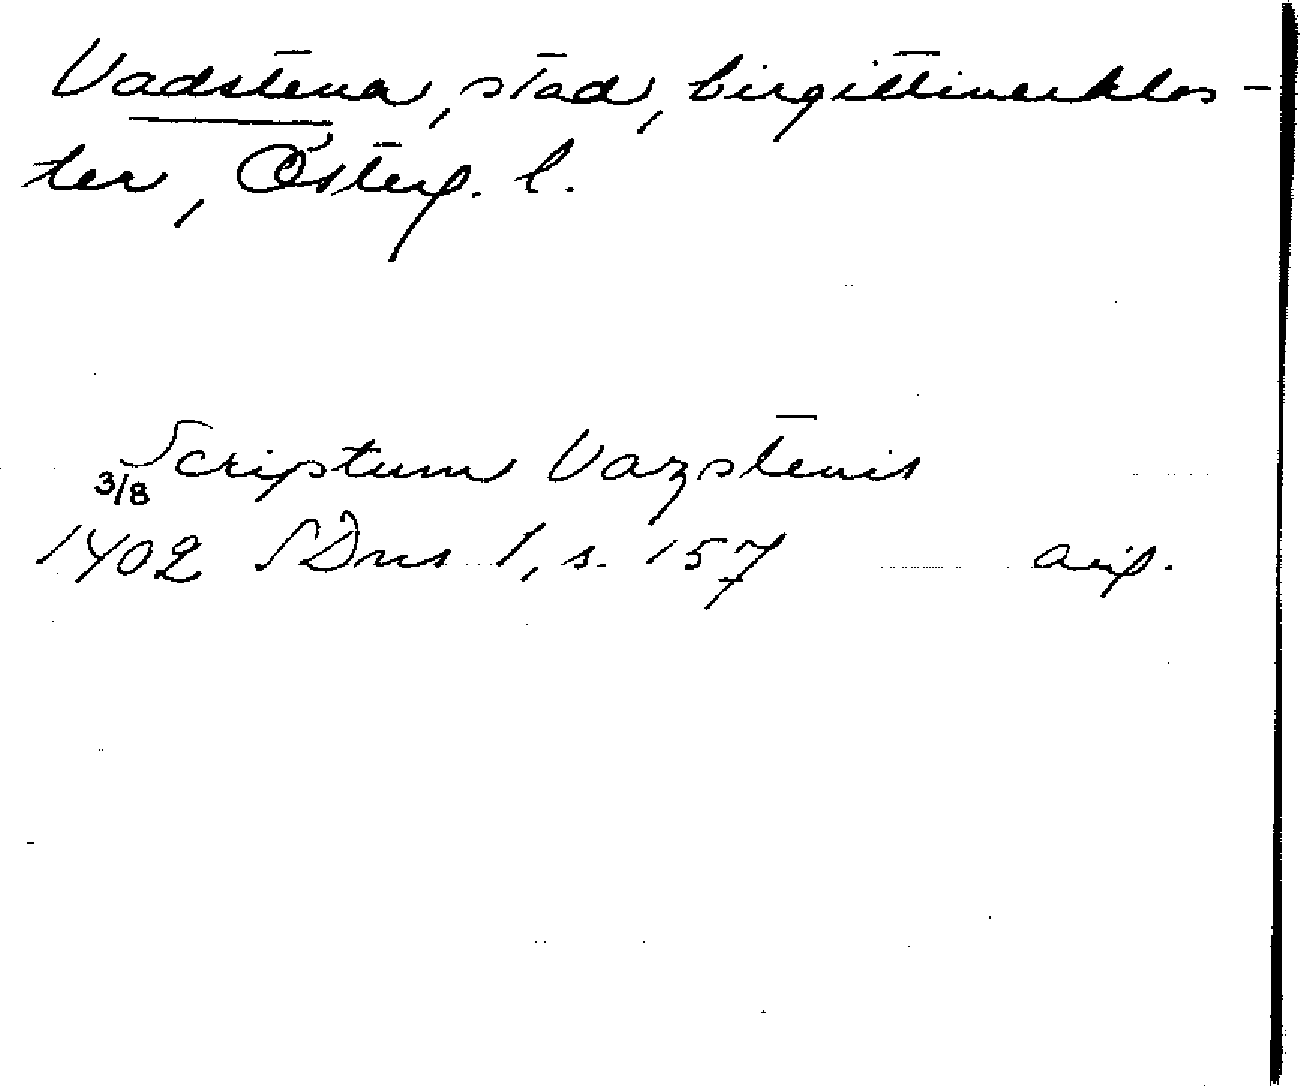 Vadstena, stad, birgittinerklos-
ter, Österg. l.
Scriptum Vazstenis
3/8
1402 SDns 1, s. 157 avig.